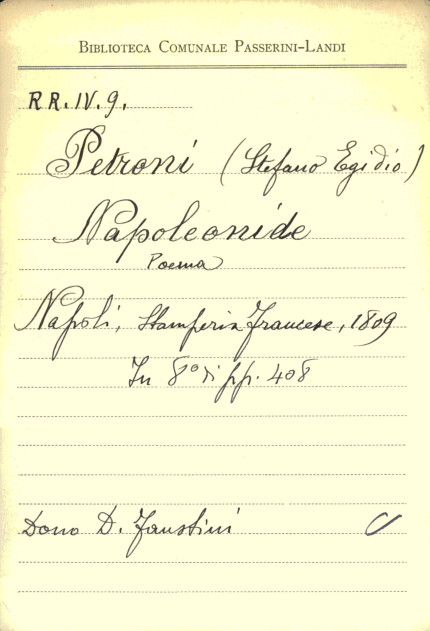 BIBLIOTECA COMUNALE PASSERINI-LANDI
RR.IV.9.
Petroni (Stefano Egidio)
Napoleonide
Poema
Napoli, Stamperia Francese, 1809
In 8° di pp. 408
Dono D. Faustini